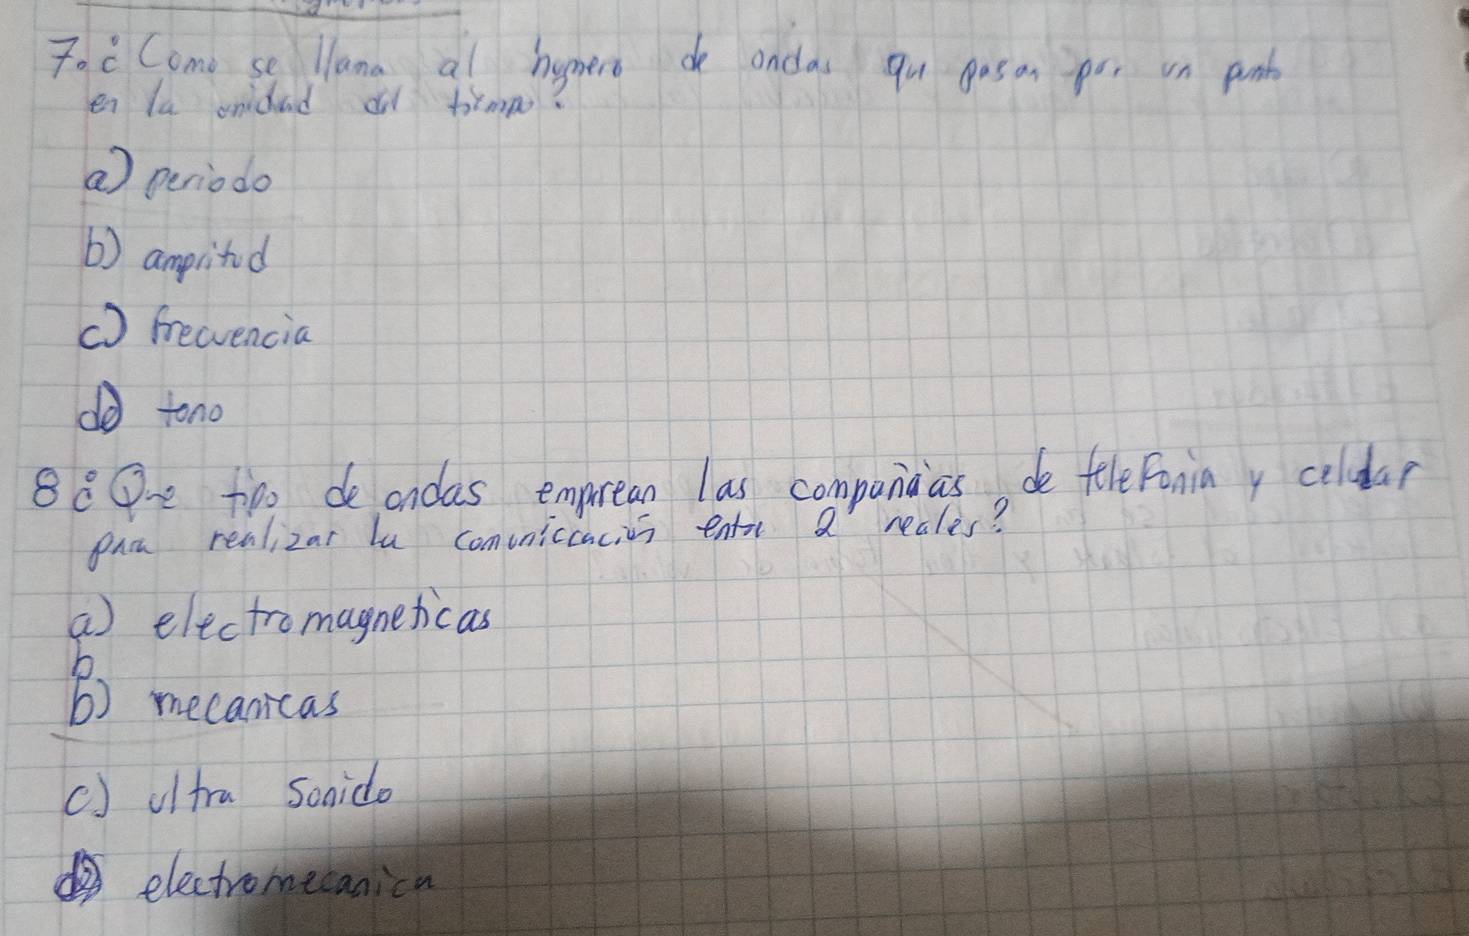 7. ¿Como se llama al numero de ondas que pasan por un punto
en la unidad del tiempo?
a) periodo
b) ampritud
c) frecuencia
d) tono
8 ¿Que tipo de ondas emprean las compañias de telefonia y celular
para realizar la comuniccación entre 2 reales?
a) electromagneticas
b
b) mecanicas
c) ultra sonido
d) electromecanica